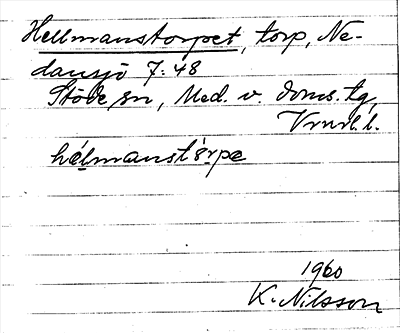 Hellmanstorpet, torp, Ne-
dansjö 7:48
Stöde sn, Med. v. doms. tg,
Vnrl. l.
hélmanstòrpe
1960
K. Nilsson